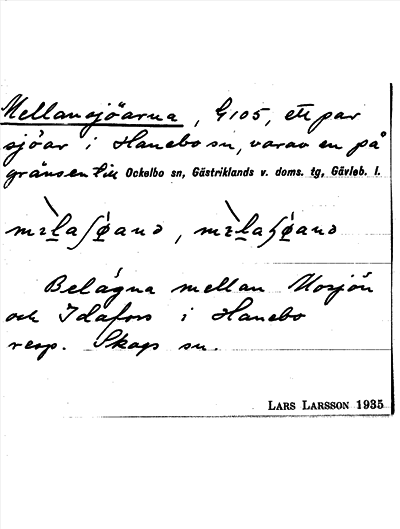 Mellansjöarna, G105, ett par
sjöar i Hanebo sn, varav en på
gränsen till Ockelbo sn, Gästriklands v. doms. tg, Gävleb. l.
Belägna mellan Mosjön
och Idafors i Hanebo
resp. Skogs sn.
LARS LARSSON 1935